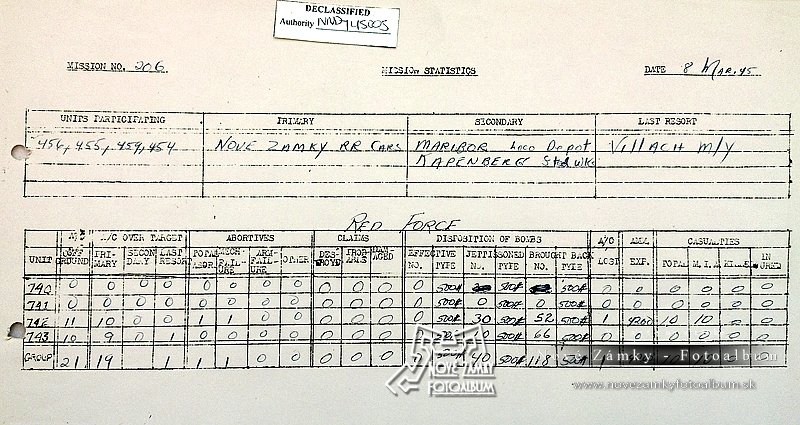 DECLASSIFIED
Authority NND745005
MISSION NO. 206 MISSION STATISTICS DATE 8 MAR. 45
UNITS PARTICIPATING PRIMARY SECONDARY LAST RESORT
456, 455, 459, 454 NOVE ZAMKY RR CARS MARIBOR Loco Depot VILLACH M/Y
KAPENBERG Steel Wks
RED FORCE
A/C OVER TARGET ABORTIVES CLAIMS DISPOSITION OF BOMBS A/C AMM. CASUALTIES
UNIT OFF GROUND PRI-MARY SECON DARY LAST RESORT TOTAL ABOR. MECH FAIL-URE FAIL-URE OTHER DES-TROYD PROB ABLE DAM-AGED EFFECTIVE NO. TYPE JETTISSONED NO. TYPE BROUGHT BACK NO. TYPE LOST EXP. TOTAL M.I.A. KILLED IN JURED
740 0 0 0 0 0 0 0 0 0 0 0 0 500# 500# 500# 0 0 0 0 0 0
741 0 0 0 0 0 0 0 0 0 0 0 0 500# 0 500# 0 500# 0 0 0 0 0 0
742 11 10 0 0 1 1 0 0 0 0 0 500# 30 500# 52 500# 1 4200 10 10
743 10 9 0 1 0 0 0 0 0 0 0 66 500# 0 0 0 0
GROUP 21 19 1 1 1 0 0 0 0 0 500# 40 500# 118 500#
NOVÉ ZÁMKY
FOTOALBUM
Zámky - Fotoalbum
www.novezamkyfotoalbum.sk